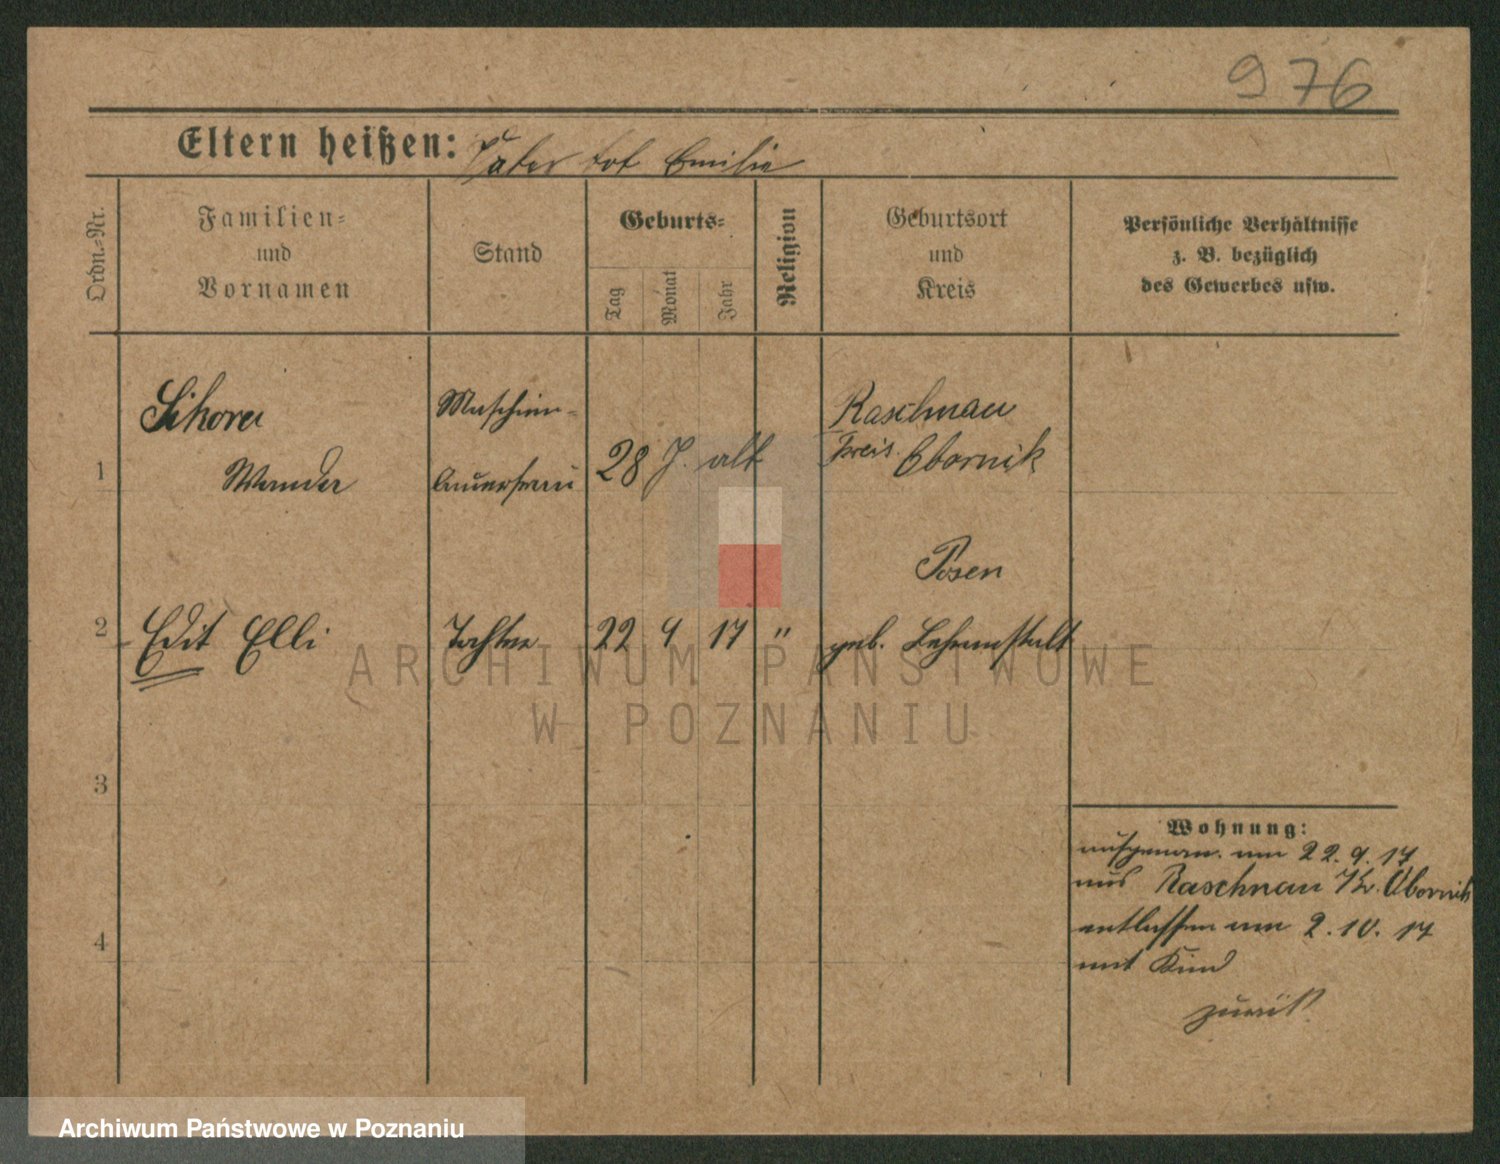 976
Eltern heißen: Vater tot Emilie
Ordn.-Nr.
Familien-
und
Vornamen
Stand
Geburts-
Tag
Monat
Jahr
Religion
Geburtsort
und
Kreis
Persönliche Verhältnisse
z. B. bezüglich
des Gewerbes usw.
Sikora
Maschien-
Raschnau
Kreis Obornik
1
Wanda
bauerfrau
28 J. alt
Posen
2
Edit Elli
Tochter
22 9 17
"
geb. Hebeanstalt
ARCHIWUM PAŃSTWOWE
W POZNANIU
3
Wohnung:
am 22.9.17
aus Raschnau Kr. Obornik
4
entlassen am 2.10.17
mit Kind
zurück
Archiwum Państwowe w Poznaniu